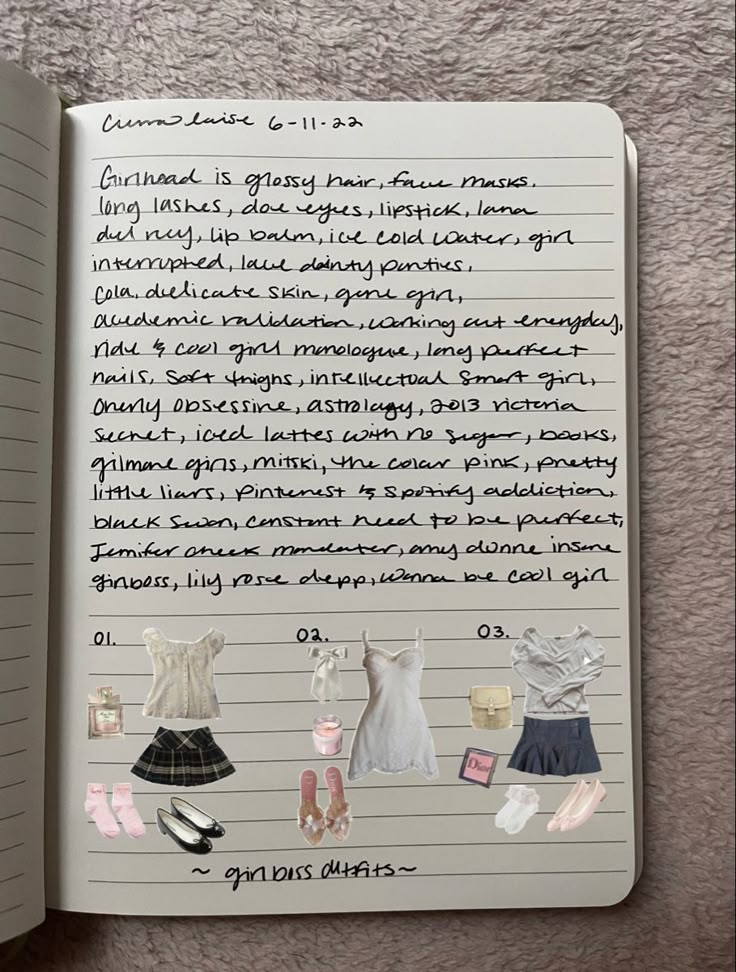 6-11-22
Girlhead is glossy hair, face masks,
long lashes, doe eyes, lipstick, lana
del rey, lip balm, ice cold water, girl
interrupted, lace dainty panties,
cola, delicate skin, gone girl,
acedemic validation, working out everyday,
ride & cool girl monologue, long perfect
nails, soft thighs, intellectual smart girl,
overly obsessive, astrology, 2013 victoria
secret, iced lattes with no sugar, books,
gilmore girls, mitski, the color pink, pretty
little liars, pinterest & spotify addiction,
black swan, constant need to be perfect,
Jennifer check mandater, amy dunne insane
girlboss, lily rose depp, wanna be cool girl
01. 02. 03.
Dior
~ girl boss outfits ~